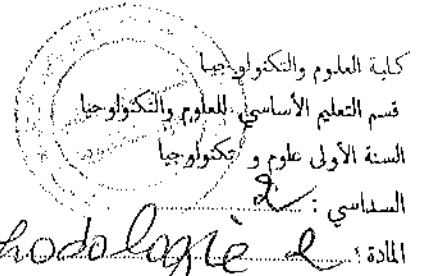 كلية العلوم والتكنولوجيا
قسم التعليم الأساسي للعلوم والتكنولوجيا
السنة الأولى علوم و تكنولوجيا
السداسي : 2
المادة : hodologie 2